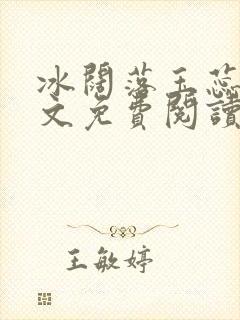 冰闊落玉蕊
文免費閱讀
王敏婷